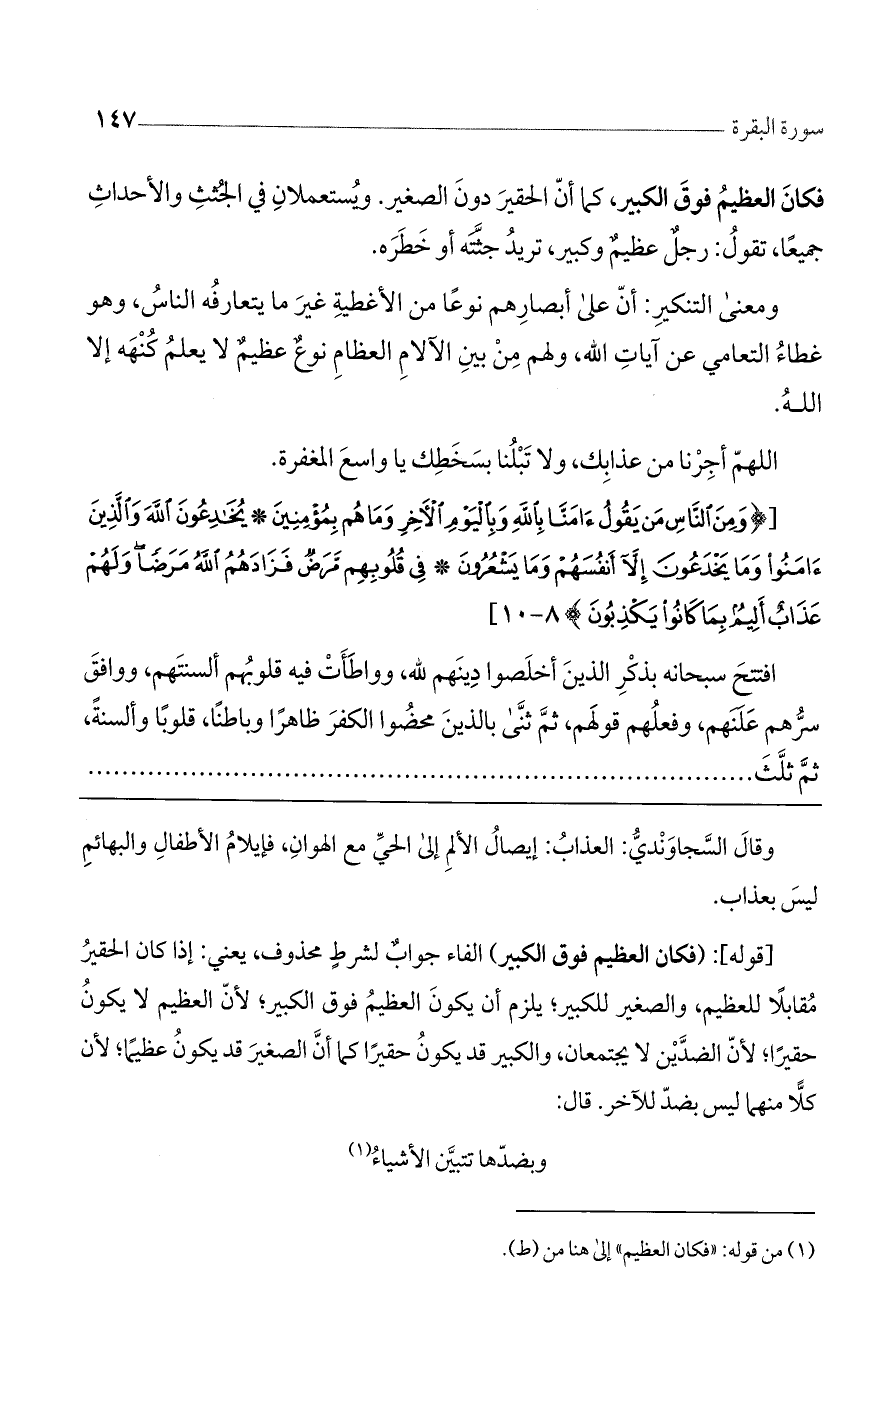 سورة البقرة ١٤٧
فكانَ العظيمُ فوقَ الكبير، كما أنّ الحقيرَ دونَ الصغير. ويُستعملانِ في الجُثثِ والأحداثِ
جميعًا، تقولُ: رجلٌ عظيمٌ وكبير، تريدُ جثَّتَه أو خَطَرَه.
ومعنىٰ التنكيرِ: أنّ علىٰ أبصارِهم نوعًا من الأغطيةِ غيرَ ما يتعارفُه الناسُ، وهو
غطاءُ التعامي عن آياتِ الله، ولهم مِنْ بينِ الآلامِ العظامِ نوعٌ عظيمٌ لا يعلمُ كُنْهَه إلا
اللـهُ.
اللهمّ أجِرْنا من عذابِك، ولا تَبْلُنا بسَخَطِك يا واسعَ المغفرة.
[﴿وَمِنَ ٱلنَّاسِ مَن يَقُولُ ءَامَنَّا بِٱللَّهِ وَبِٱلْيَوْمِ ٱلْأَخِرِ وَمَا هُم بِمُؤْمِنِينَ * يُخَٰدِعُونَ ٱللَّهَ وَٱلَّذِينَ
ءَامَنُوا۟ وَمَا يَخْدَعُونَ إِلَّآ أَنفُسَهُمْ وَمَا يَشْعُرُونَ * فِى قُلُوبِهِم مَّرَضٌ فَزَادَهُمُ ٱللَّهُ مَرَضًا ۖ وَلَهُمْ
عَذَابٌ أَلِيمٌۢ بِمَا كَانُوا۟ يَكْذِبُونَ﴾ ٨-١٠]
افتتحَ سبحانه بذكْرِ الذينَ أخلَصوا دِينَهم لله، وواطَأَتْ فيه قلوبُهم ألسنتَهم، ووافقَ
سرُّهم عَلَنَهم، وفعلُهم قولَهم، ثمَّ ثنَّىٰ بالذينَ محضُوا الكفرَ ظاهرًا وباطنًا، قلوبًا وألسنةً،
ثمَّ ثلَّثَ................................................................................
وقالَ السَّجاوَنْديُّ: العذابُ: إيصالُ الألمِ إلىٰ الحيِّ مع الهوانِ، فإيلامُ الأطفالِ والبهائمِ
ليسَ بعذاب.
[قوله]: (فكان العظيم فوق الكبير) الفاء جوابٌ لشرطٍ محذوف، يعني: إذا كان الحقيرُ
مُقابلًا للعظيم، والصغير للكبير؛ يلزم أن يكونَ العظيمُ فوق الكبير؛ لأنّ العظيم لا يكونُ
حقيرًا؛ لأنّ الضدَّيْن لا يجتمعان، والكبير قد يكونُ حقيرًا كما أنَّ الصغيرَ قد يكونُ عظيمًا؛ لأن
كلًّا منهما ليس بضدّ للآخر. قال:
وبضدّها تتبيَّن الأشياءُ(١)
(١) من قوله: «فكان العظيم» إلىٰ هنا من (ط).